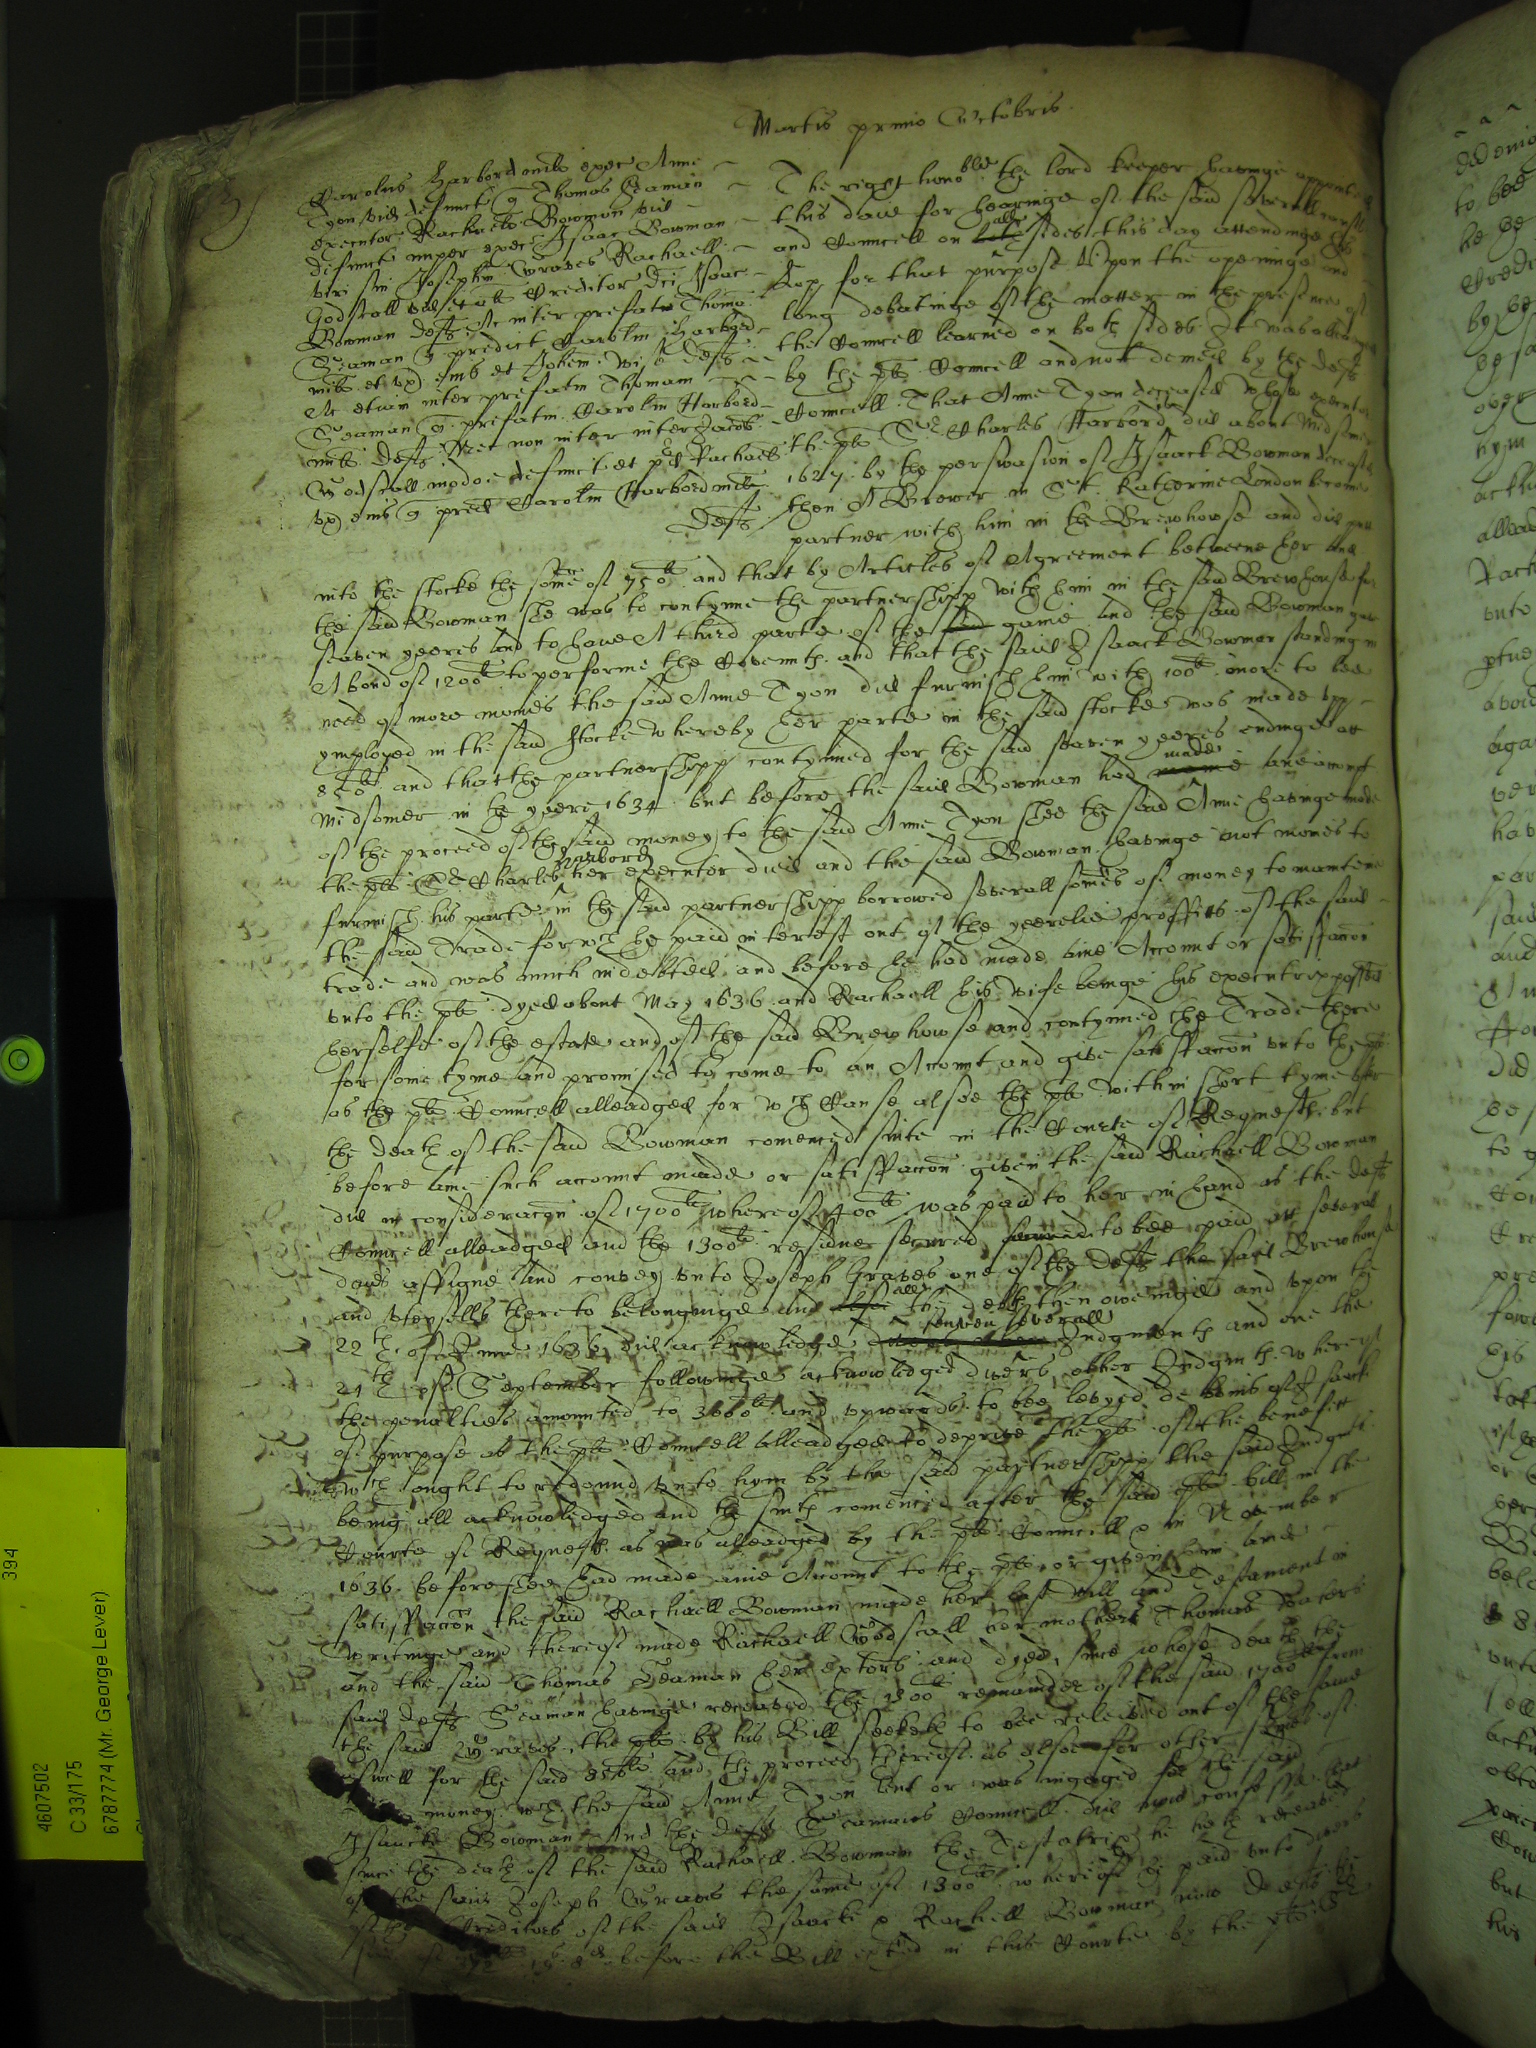 Martis primo Octobris
Carolus Harbord miles exec Anne
Tyon vid defuncte q Thomas Seaman
executor Rachaelis Bowman vid
defuncte nuper exec Isaac Bowman
viri sui Josephus Graves Rachaell
Godscall vid et al Creditor dci Isaac
Bowman defts Ac inter prefat Thoma
Seaman q predict Carolum Harbord
milit et
Ac etiam inter prefatm Thomam
Seaman q prefatm Carolm Harbord
milit deft Necnon inter Jacob
Godscall modo defunct et Rachaell
ux eius q pred Carolm Harbord milit
Defts
The right honoble the lord keeper havinge appointed
this daie for hearinge of the said severall causes
and Councell on all sides this day attendinge his
Lop for that purpose Upon the openinge and
long debatinge of the matter in the presence of
the Councell learned on both sides It was alleadged
by the plts Councell and not denied by the defts
Councell That Anne Tyon deceased whose executor
the plt Sr Charles Harbord is did about Midsomer
1627 by the perswasion of Isaack Bowman deceased
then A Brewer in St Katherine London become
partner with him in the Brewhowse and did putt
into the stocke the some of 750li and that by Articles of Agreement betweene her and
the said Bowman she was to contynue the partnershipp with him in the said Brewhouse for
seaven yeeres and to have A third parte of the gaine and the said Bowman gave
A bond of 1200li to performe the Covennts and that the said Isaack Bowman standing in
need of more monies the said Anne Tyon did furnish him with 100li more to bee
ymployed in the said stocke whereby her parte in the said stocke was made upp
850li and that the partnershipp contynued for the said seaven yeeres endinge at
Midsomer in the yeere 1634 but before the said Bowman had made anie accompt
of the proceed of the said money to the said Anne Tyon shee the said Anne havinge made
the plt Sr Charles Harbord her executor died and the said Bowman havinge not monies to
furnish his parte in the said partnershipp borrowed severall somes of money to mainteine
the said Trade for wch he paid interest out of the yeerelie proffitts of the said
trade and was much indebted and before he had made anie Accompt or satisfaccon
unto the plt dyed about May 1636 and Rachaell his wife beinge his executrix possessed
herselfe of the estate and of the said Brewhowse and contynued the Trade there
for some tyme and promised to come to an Accompt and give satisfaccon unto the plt
as the plts Councell alleadged for wch cause alsoe the plt within short tyme after
the death of the said Bowman comenced suite in the Courte of Requests but
before anie such accompt made or satisfaccon given the said Rachaell Bowman
did in consideracon of 1700li whereof 400li was paid to her in hand as the defts
Councell alleadged and the 1300li residue secured to bee paid att severall
daies assigne and convey unto Joseph Graves one of the defts the said Brewhouse
and vessells thereto belonginge and all the debts then oweinge and upon the
22th of June 1636 did acknowledge seaven severall Judgments and one the
21th of September followinge acknowledged divers other Judgmts whereof
the penalties amounted to 3000li and upwards to bee levyed de bonis of Isaack
of purpose as the plts Councell alleadged to deprive the plt of the benefitt
wch ought to redound unto hym by the said partnershipp the said Judgmts
being all acknowledged and the suits comenced after the said plts bill in the
Courte of Requests as was alleadged by the plts Councell & in November
1636 before shee had made anie Accompt to the plt or given him anie
satisfaccon the said Rachaell Bowman made her last will and Testament in
writinge and thereof made Rachaell Godscall her mother Thomas
and the said Thomas Seaman her extors and dyed, since whose death the
said deft Seaman havinge receaved the 1300li remainder of the said 1700li from
the said Graves, the plt by his Bill seeketh to bee releived out of the same
aswell for the said 850li and the proceed thereof as alsoe for other somes of
money wch the said Anne Tyon lent or was ingaged for the said
Isaacke Bowman And the deft Seamans Councell did now confesse that
since the death of the said Rachaell Bowman the Testatrix he hath receaved
of the said Joseph Graves the some of 1300li whereof he paid unto divers
of the Creditors of the said Isaacke & Rachell Bowman now deceased
before the Bill exhited in this Courte by the plt
394
4607502
C 33/175
6787774 (Mr. George Lever)